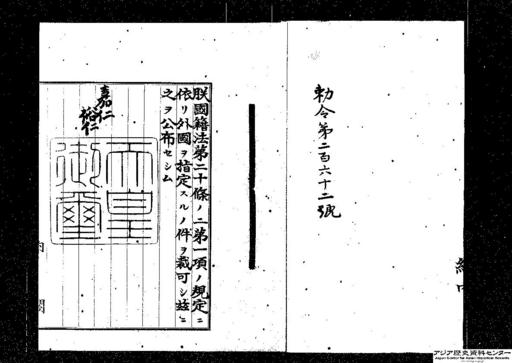 勅令第二百六十二號
朕國籍法第二十條ノ二第一項ノ規定ニ
依リ外國ヲ指定スルノ件ヲ裁可シ茲ニ
之ヲ公布セシム
嘉仁
裕仁
天皇
御璽
内閣
アジア歴史資料センター
Japan Center for Asian Historical Records